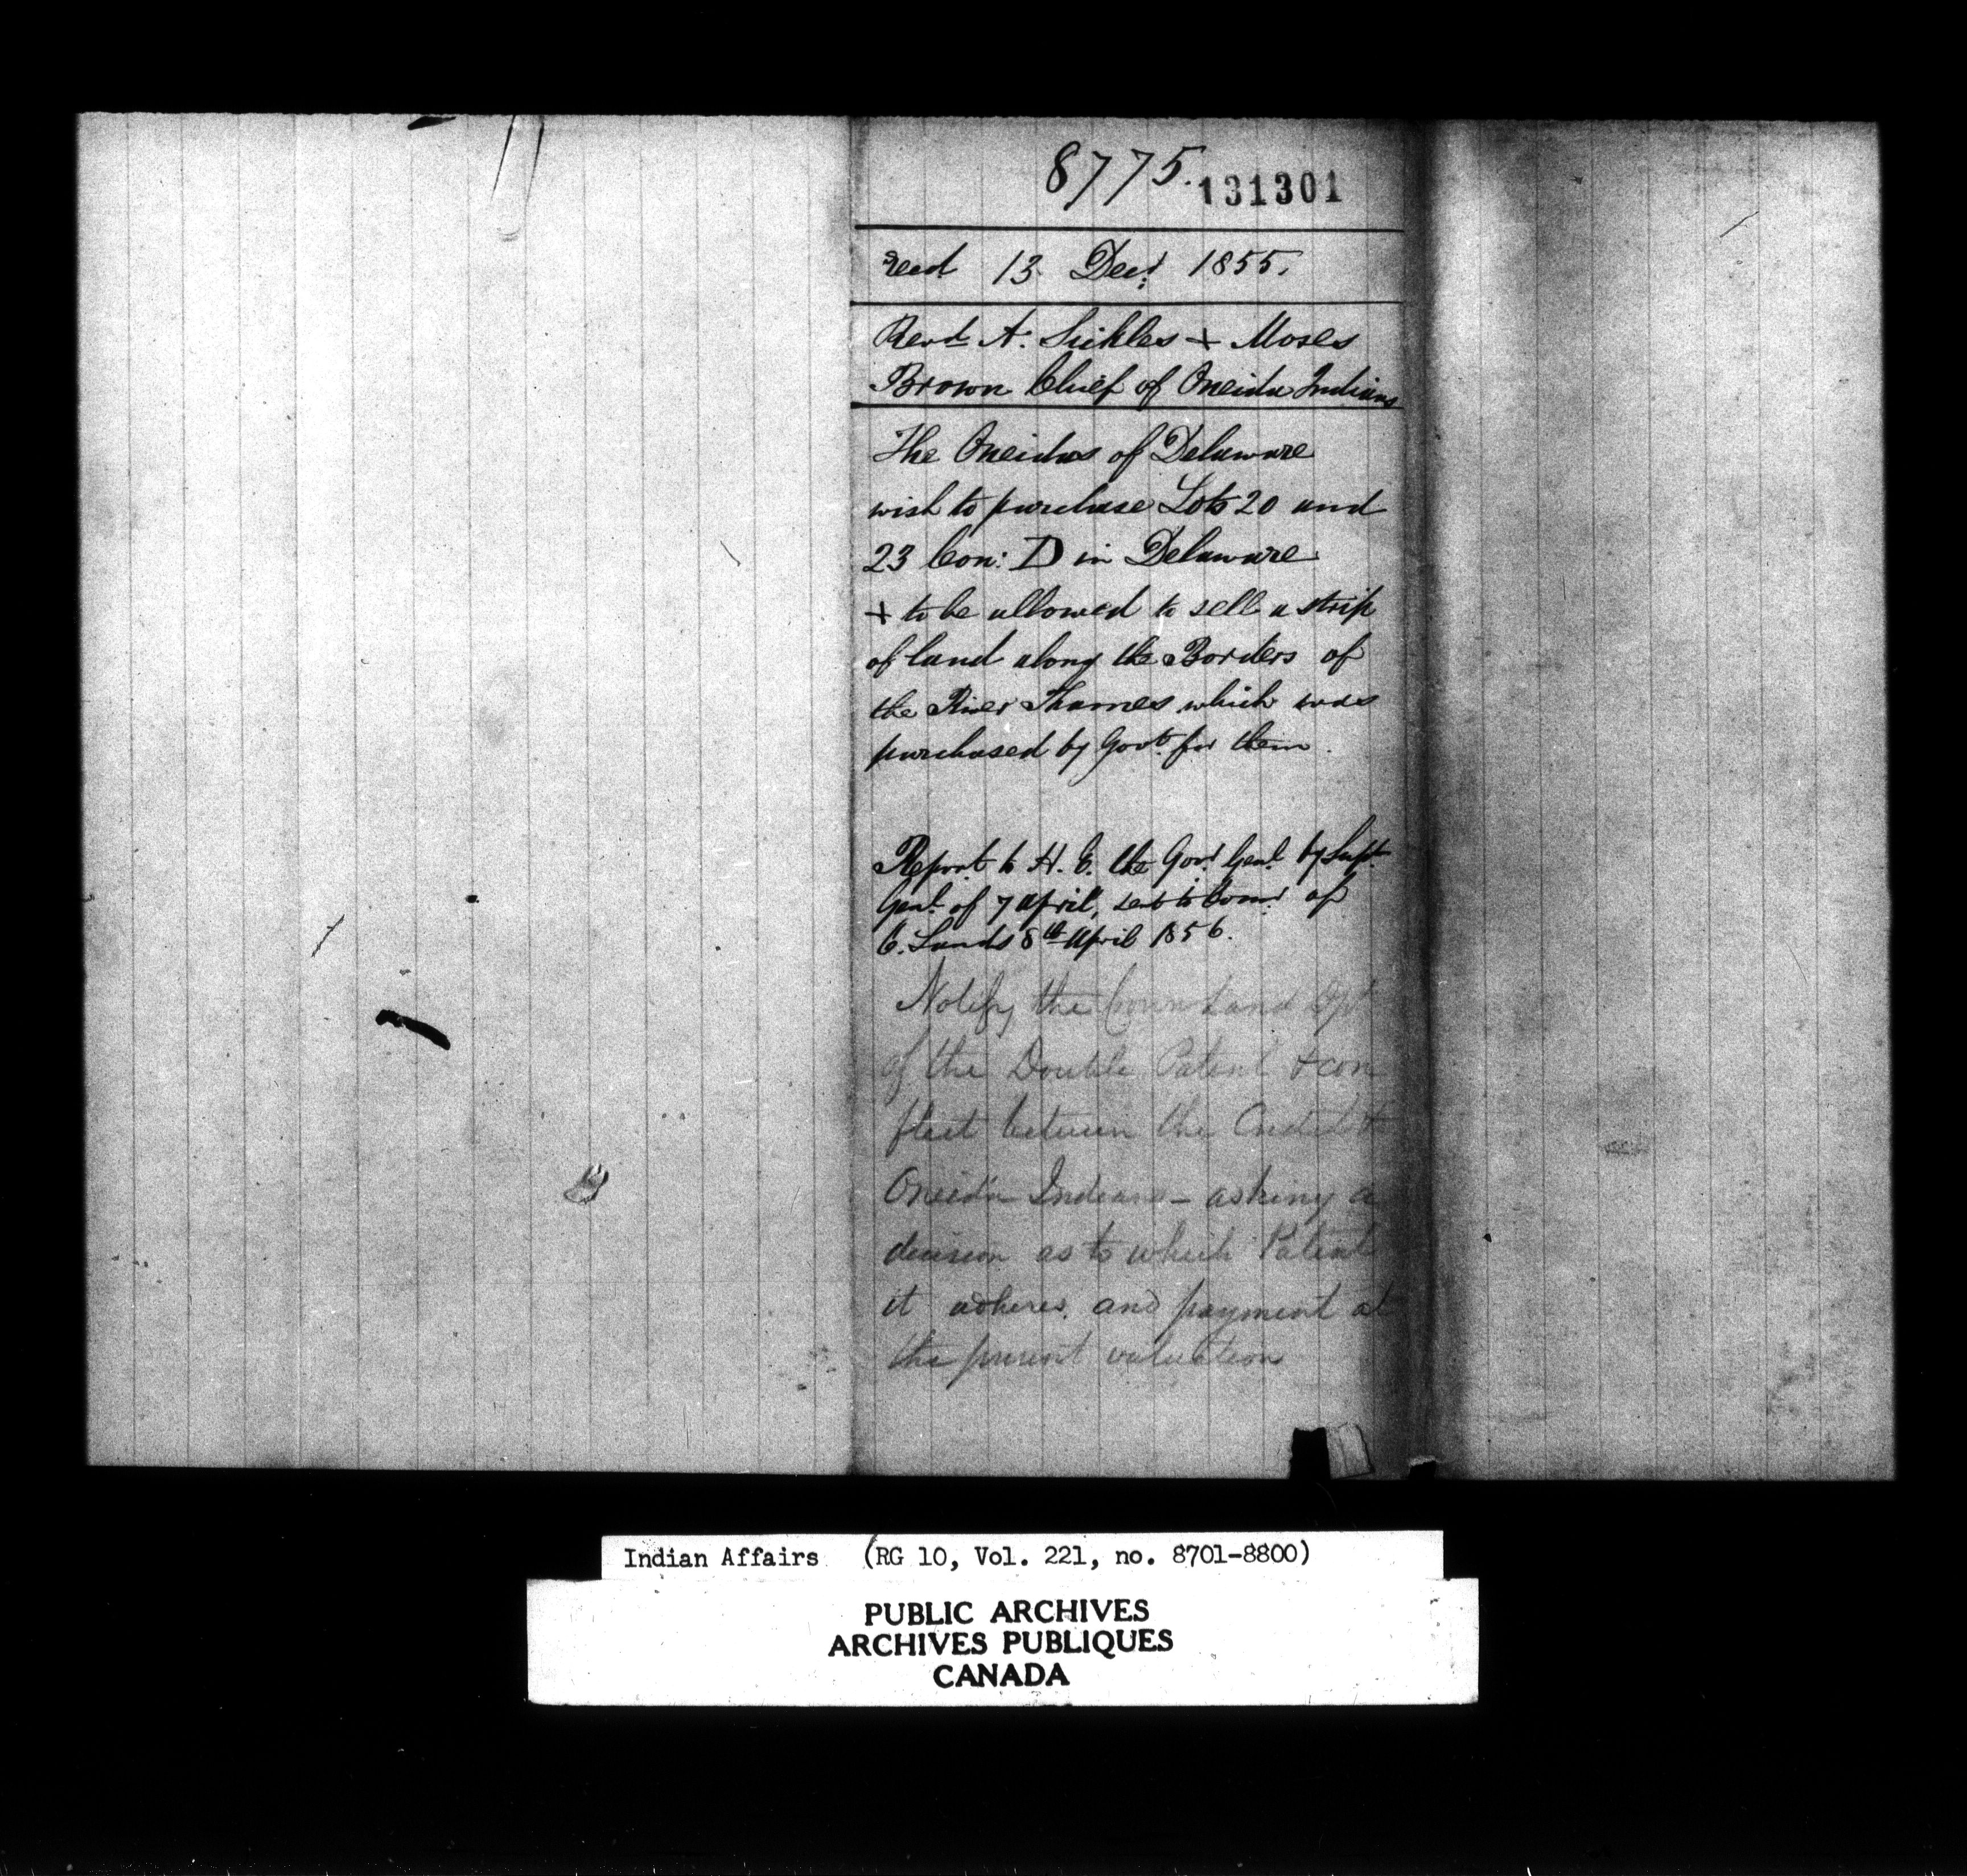 8775. 131301
Recd 13 Decr 1855.
Revd A. Sickles + Moses
Brown Chief of Oneida Indians
The Oneidas of Delaware
wish to purchase Lots 20 and
23 Con: D in Delaware
+ to be allowed to sell a strip
of land along the Borders of
the River Thames which was
purchased by Govt for them.
Report to H. E. the Govr Genl by Supt
Genl of 7 April, sent to Comr of
C. Lands 8th April 1856.
Notify the Crown Land Dpt
of the Double Patent & con
flict between the
Oneida Indians - asking a
decision as to which Patent
it adheres, and payment at
the present valuation
Indian Affairs (RG 10, Vol. 221, no. 8701-8800)
PUBLIC ARCHIVES
ARCHIVES PUBLIQUES
CANADA